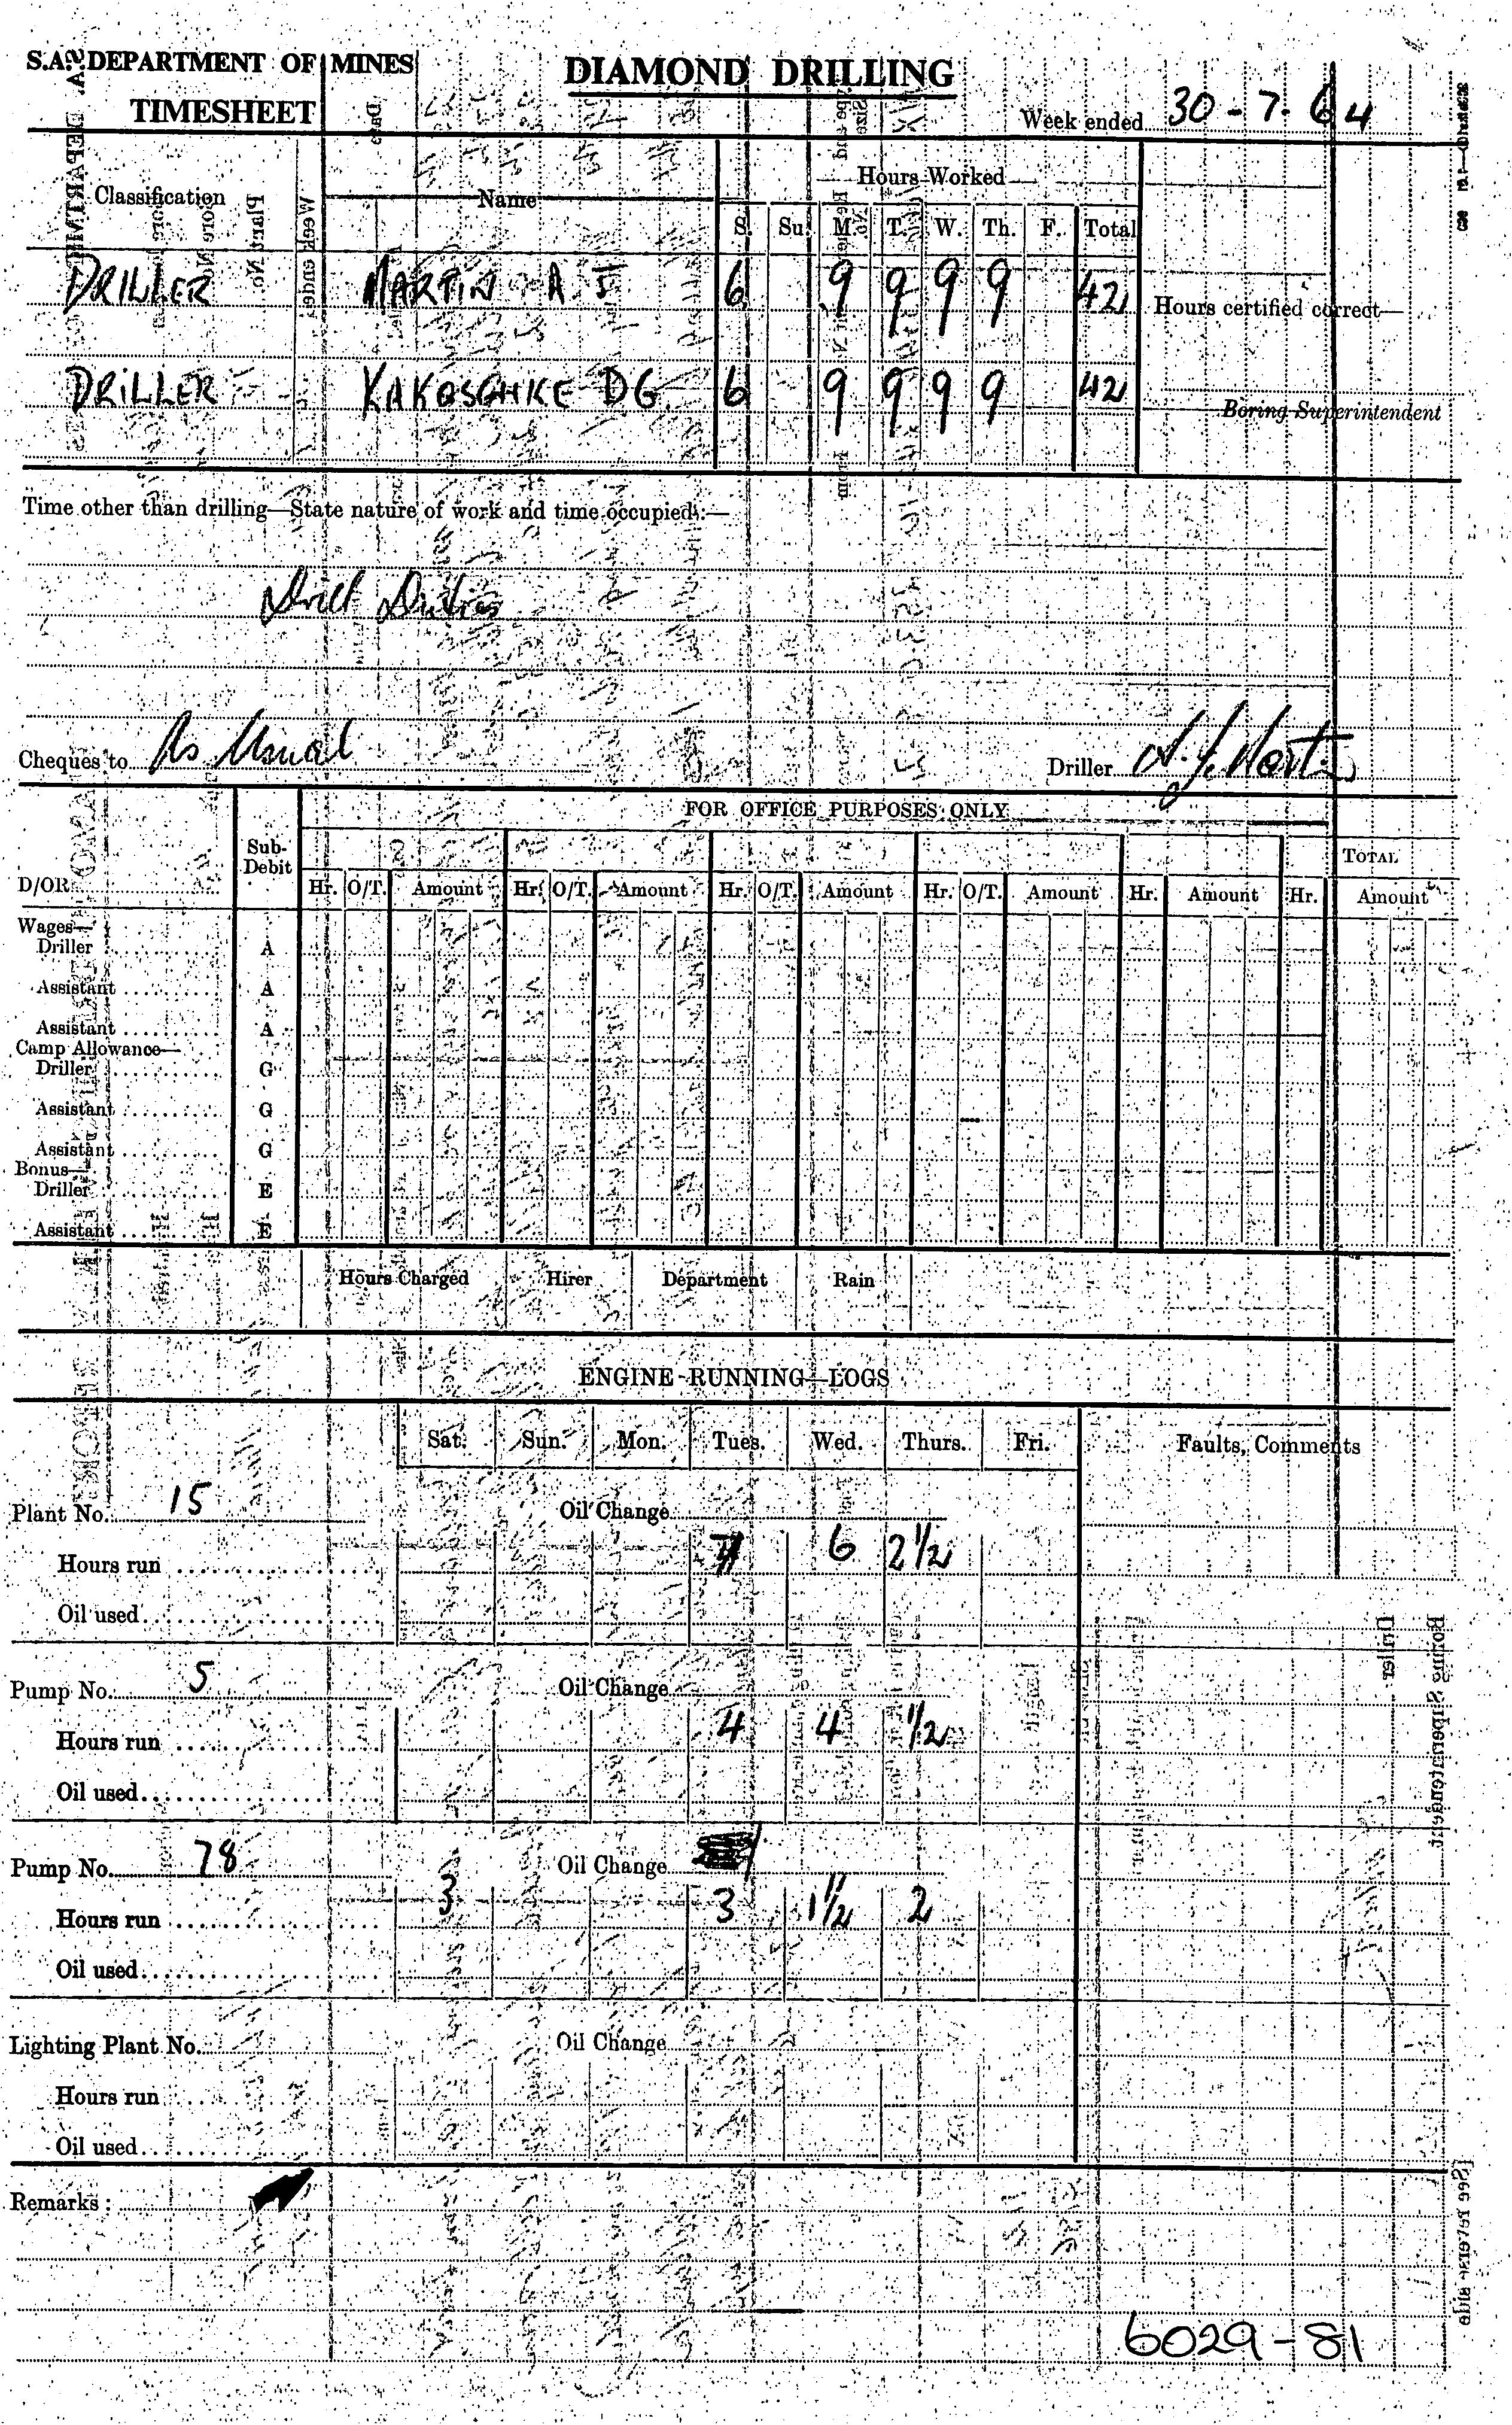 S.A. DEPARTMENT OF MINES
TIMESHEET
DIAMOND DRILLING
Week ended 30-7-64
Classification Name Hours Worked
S. Su. M. T. W. Th. F. Total
DRILLER MARTIN A J 6 9 9 9 9 42
Hours certified correct—
DRILLER KAKOSCHKE DG 6 9 9 9 9 42
Boring Superintendent
Time other than drilling—State nature of work and time occupied:—
Drill Duties
Cheques to As Usual Driller A. J. Martin
FOR OFFICE PURPOSES ONLY
D/OR Sub-Debit TOTAL
Hr. O/T. Amount Hr. O/T. Amount Hr. O/T. Amount Hr. O/T. Amount Hr. Amount Hr. Amount
Wages—
Driller A
Assistant A
Assistant A
Camp Allowance—
Driller G
Assistant G
Assistant G
Bonus—
Driller E
Assistant E
Hours Charged Hirer Department Rain
ENGINE RUNNING LOGS
Sat. Sun. Mon. Tues. Wed. Thurs. Fri. Faults, Comments
Plant No. 15 Oil Change
Hours run 6 2 1/2
Oil used
Pump No. 5 Oil Change
Hours run 4 4 1/2
Oil used
Pump No. 78 Oil Change
Hours run 3 3 1 1/2 2
Oil used
Lighting Plant No. Oil Change
Hours run
Oil used
Remarks:
6029-81